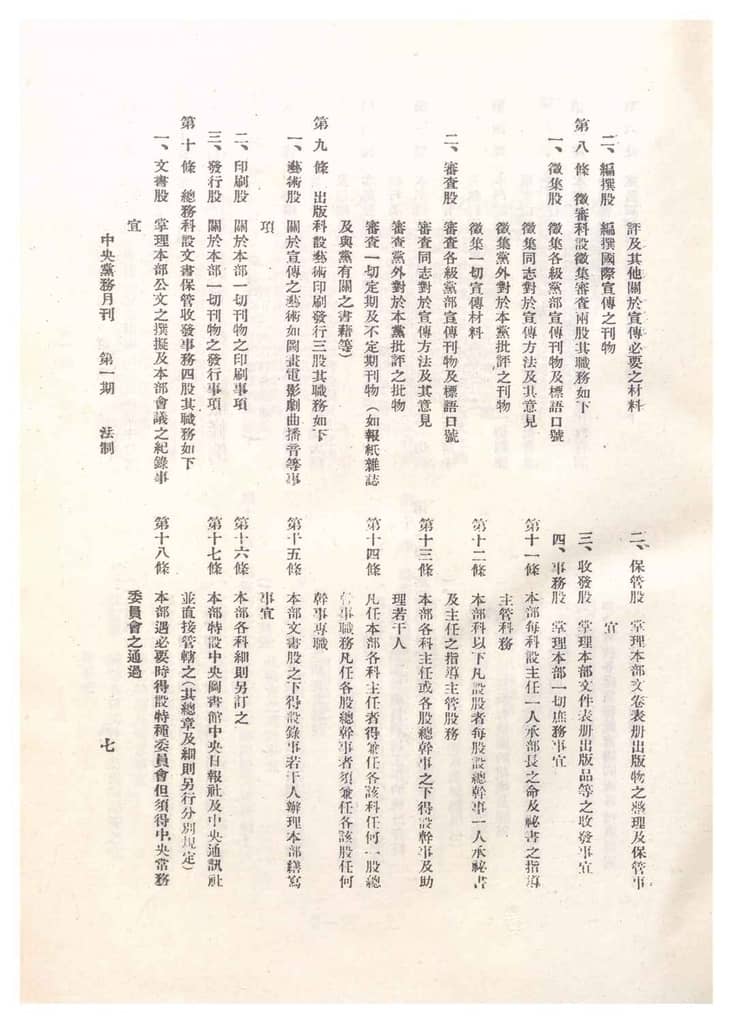 評及其他關於宣傳必要之材料
二、編撰股 編撰國際宣傳之刊物
第八條 徵審科設徵集審查兩股其職務如下
一、徵集股 徵集各級黨部宣傳刊物及標語口號
徵集同志對於宣傳方法及其意見
徵集黨外對於本黨批評之刊物
徵集一切宣傳材料
二、審查股 審查各級黨部宣傳刊物及標語口號
審查同志對於宣傳方法及其意見
審查黨外對於本黨批評之批物
審查一切定期及不定期刊物（如報紙雜誌
及與黨有關之書藉等）
第九條 出版科設藝術印刷發行三股其職務如下
一、藝術股 關於宣傳之藝術如圖畫電影劇曲播音等事
項
二、印刷股 關於本部一切刊物之印刷事項
三、發行股 關於本部一切刊物之發行事項
第十條 總務科設文書保管收發事務四股其職務如下
一、文書股 掌理本部公文之撰擬及本部會議之紀錄事
宜
二、保管股 掌理本部文卷表册出版物之整理及保管事
宜
三、收發股 掌理本部文件表册出版品等之收發事宜
四、事務股 掌理本部一切庶務事宜
第十一條 本部每科設主任一人承部長之命及祕書之指導
主管科務
第十二條 本部科以下凡設股者每股設總幹事一人承祕書
及主任之指導主管股務
第十三條 本部各科主任或各股總幹事之下得設幹事及助
理若干人
第十四條 凡任本部各科主任者得兼任各該科任何一股總
幹事職務凡任各股總幹事者須兼任各該股任何
幹事專職
第十五條 本部文書股之下得設錄事若干人辦理本部繕寫
事宜
第十六條 本部各科細則另訂之
第十七條 本部特設中央圖書館中央日報社及中央通訊社
並直接管轄之（其總章及細則另行分別規定）
第十八條 本部遇必要時得設特種委員會但須得中央常務
委員會之通過
中央黨務月刊 第一期 法制
七